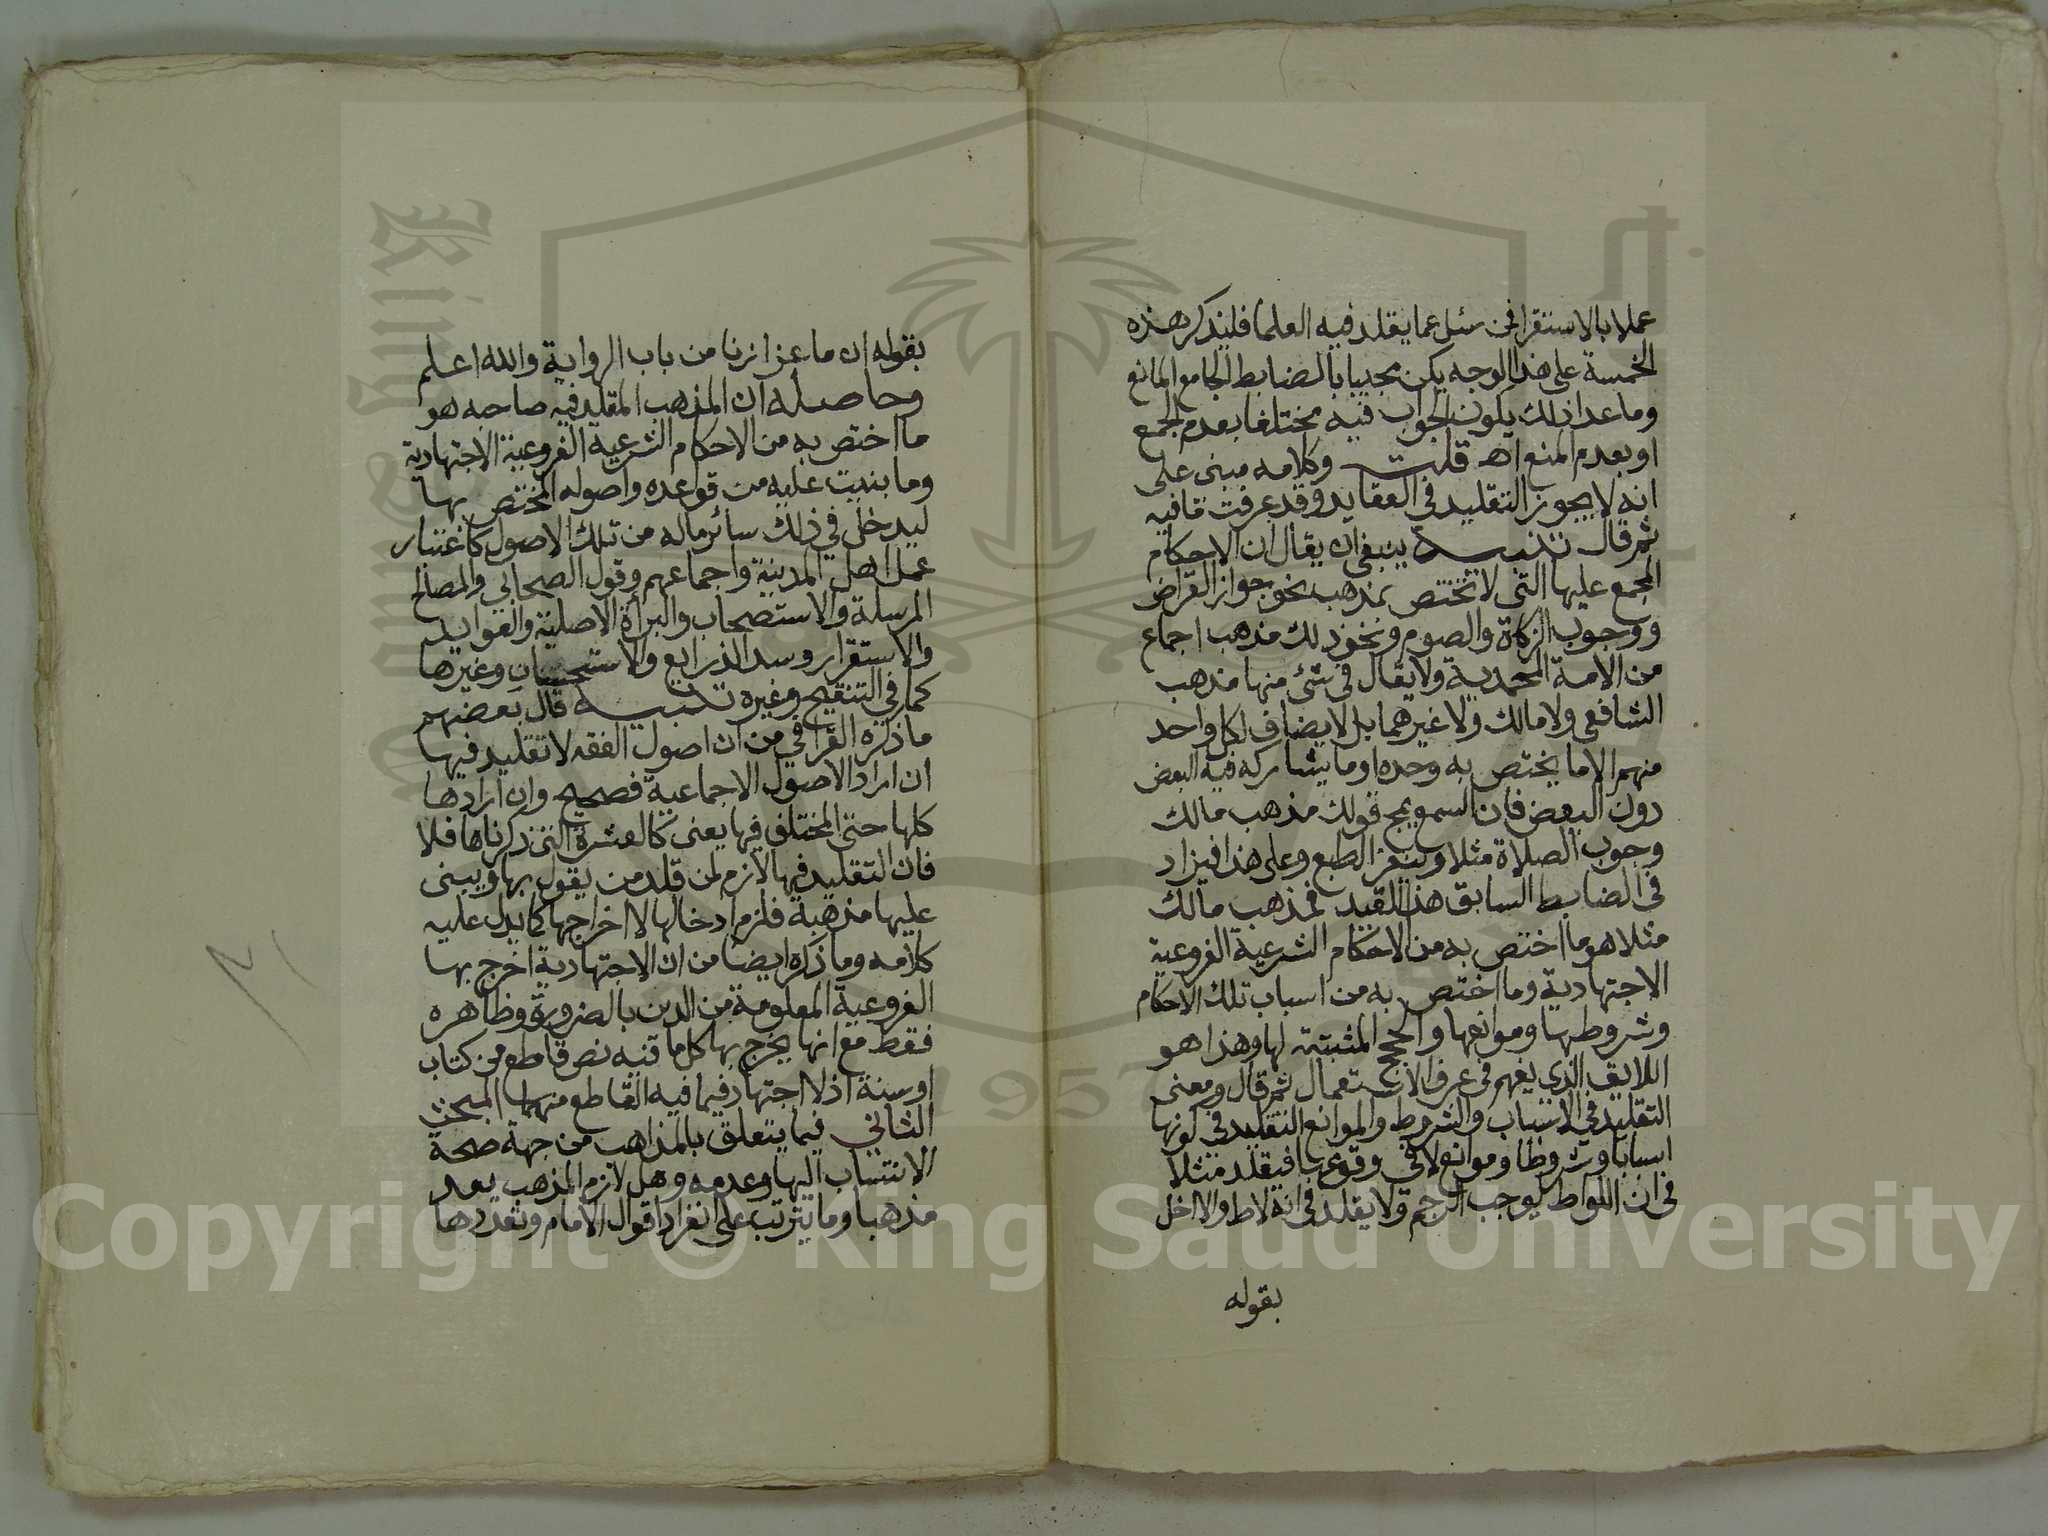 عملا بالاستقرا فمن سئل عما يقلد فيه العلما فليذكر هذه
الخمسة على هذا الوجه يكن مجيبا بالضابط الجامع المانع
وما عدا ذلك يكون الجواب فيه مختلفا بعدم الجمع
او بعدم المنع اه قلت وكلامه مبنى على
انه لا يجوز التقليد في العقايد وقد عرفت ما فيه
ثم قال تنبيه ينبغى ان يقال ان الاحكام
المجمع عليها التى لا تختص بمذهب نحو جواز القراض
ووجوب الزكاة والصوم ونحو ذلك مذهب اجماع
من الامة المحمدية ولا يقال في شئ منها مذهب
الشافعى ولا مالك ولا غيرهما بل لا يضاف لكل واحد
منهم الا ما يختص به وحده او ما يشاركه فيه البعض
دون البعض فان السمع يمج قولك مذهب مالك
وجوب الصلاة مثلا وينفر الطبع وعلى هذا فيزاد
في الضابط السابق هذا القيد فمذهب مالك
مثلا هو ما اختص به من الاحكام الشرعية الفروعية
الاجتهادية وما اختص به من اسباب تلك الاحكام
وشروطها وموانعها والحجج المثبتة لها وهذا هو
اللايق الذي يفهم في عرف الاستعمال ثم قال ومعنى
التقليد في الاسباب والشروط والموانع التقليد في كونها
اسبابا وشروطا وموانع لا في وقوعها فيقلد مثلا
في ان اللواط يوجب الرجم ولا يقلد في انه لاط والا اخل
بقوله
بقوله ان ماعزا زنا من باب الرواية والله اعلم
وحاصله ان المذهب المقلد فيه صاحبه هو
ما اختص به من الاحكام الشرعية الفروعية الاجتهادية
وما بنيت عليه من قواعده واصوله المختص بها
ليدخل في ذلك سائر ماله من تلك الاصول كاعتبار
عمل اهل المدينة واجماعهم وقول الصحابي والمصالح
المرسلة والاستصحاب والبرأة الاصلية والعوايد
والاستقرار وسد الذرايع والاستحسان وغيرها
كما في التنقيح وغيره تنبيه قال بعضهم
ما ذكره القرافي من ان اصول الفقه لا تقليد فيها
ان اراد الاصول الاجماعية فصحيح وان ارادها
كلها حتى المختلف فيها يعنى كالعشرة التى ذكرناها فلا
فان التقليد فيها لازم لمن قلد من يقول بها ويبنى
عليها مذهبه فلزم ادخالها لا اخراجها كما يدل عليه
كلامه وما ذكره ايضا من ان الاجتهادية اخرج بها
الفروعية المعلومة من الدين بالضرورة وظاهره
فقط مع انها يخرج بها كل ما فيه نص قاطع من كتاب
او سنة اذ لا اجتهاد فيما فيه القاطع منهما المبحث
الثاني فيما يتعلق بالمذاهب من جهة صحة
الانتساب اليها وعدمه وهل لازم المذهب يعد
مذهبا وما يترتب على انفراد اقوال الامام وتعددها
King Saud University
1957
Copyright © King Saud University